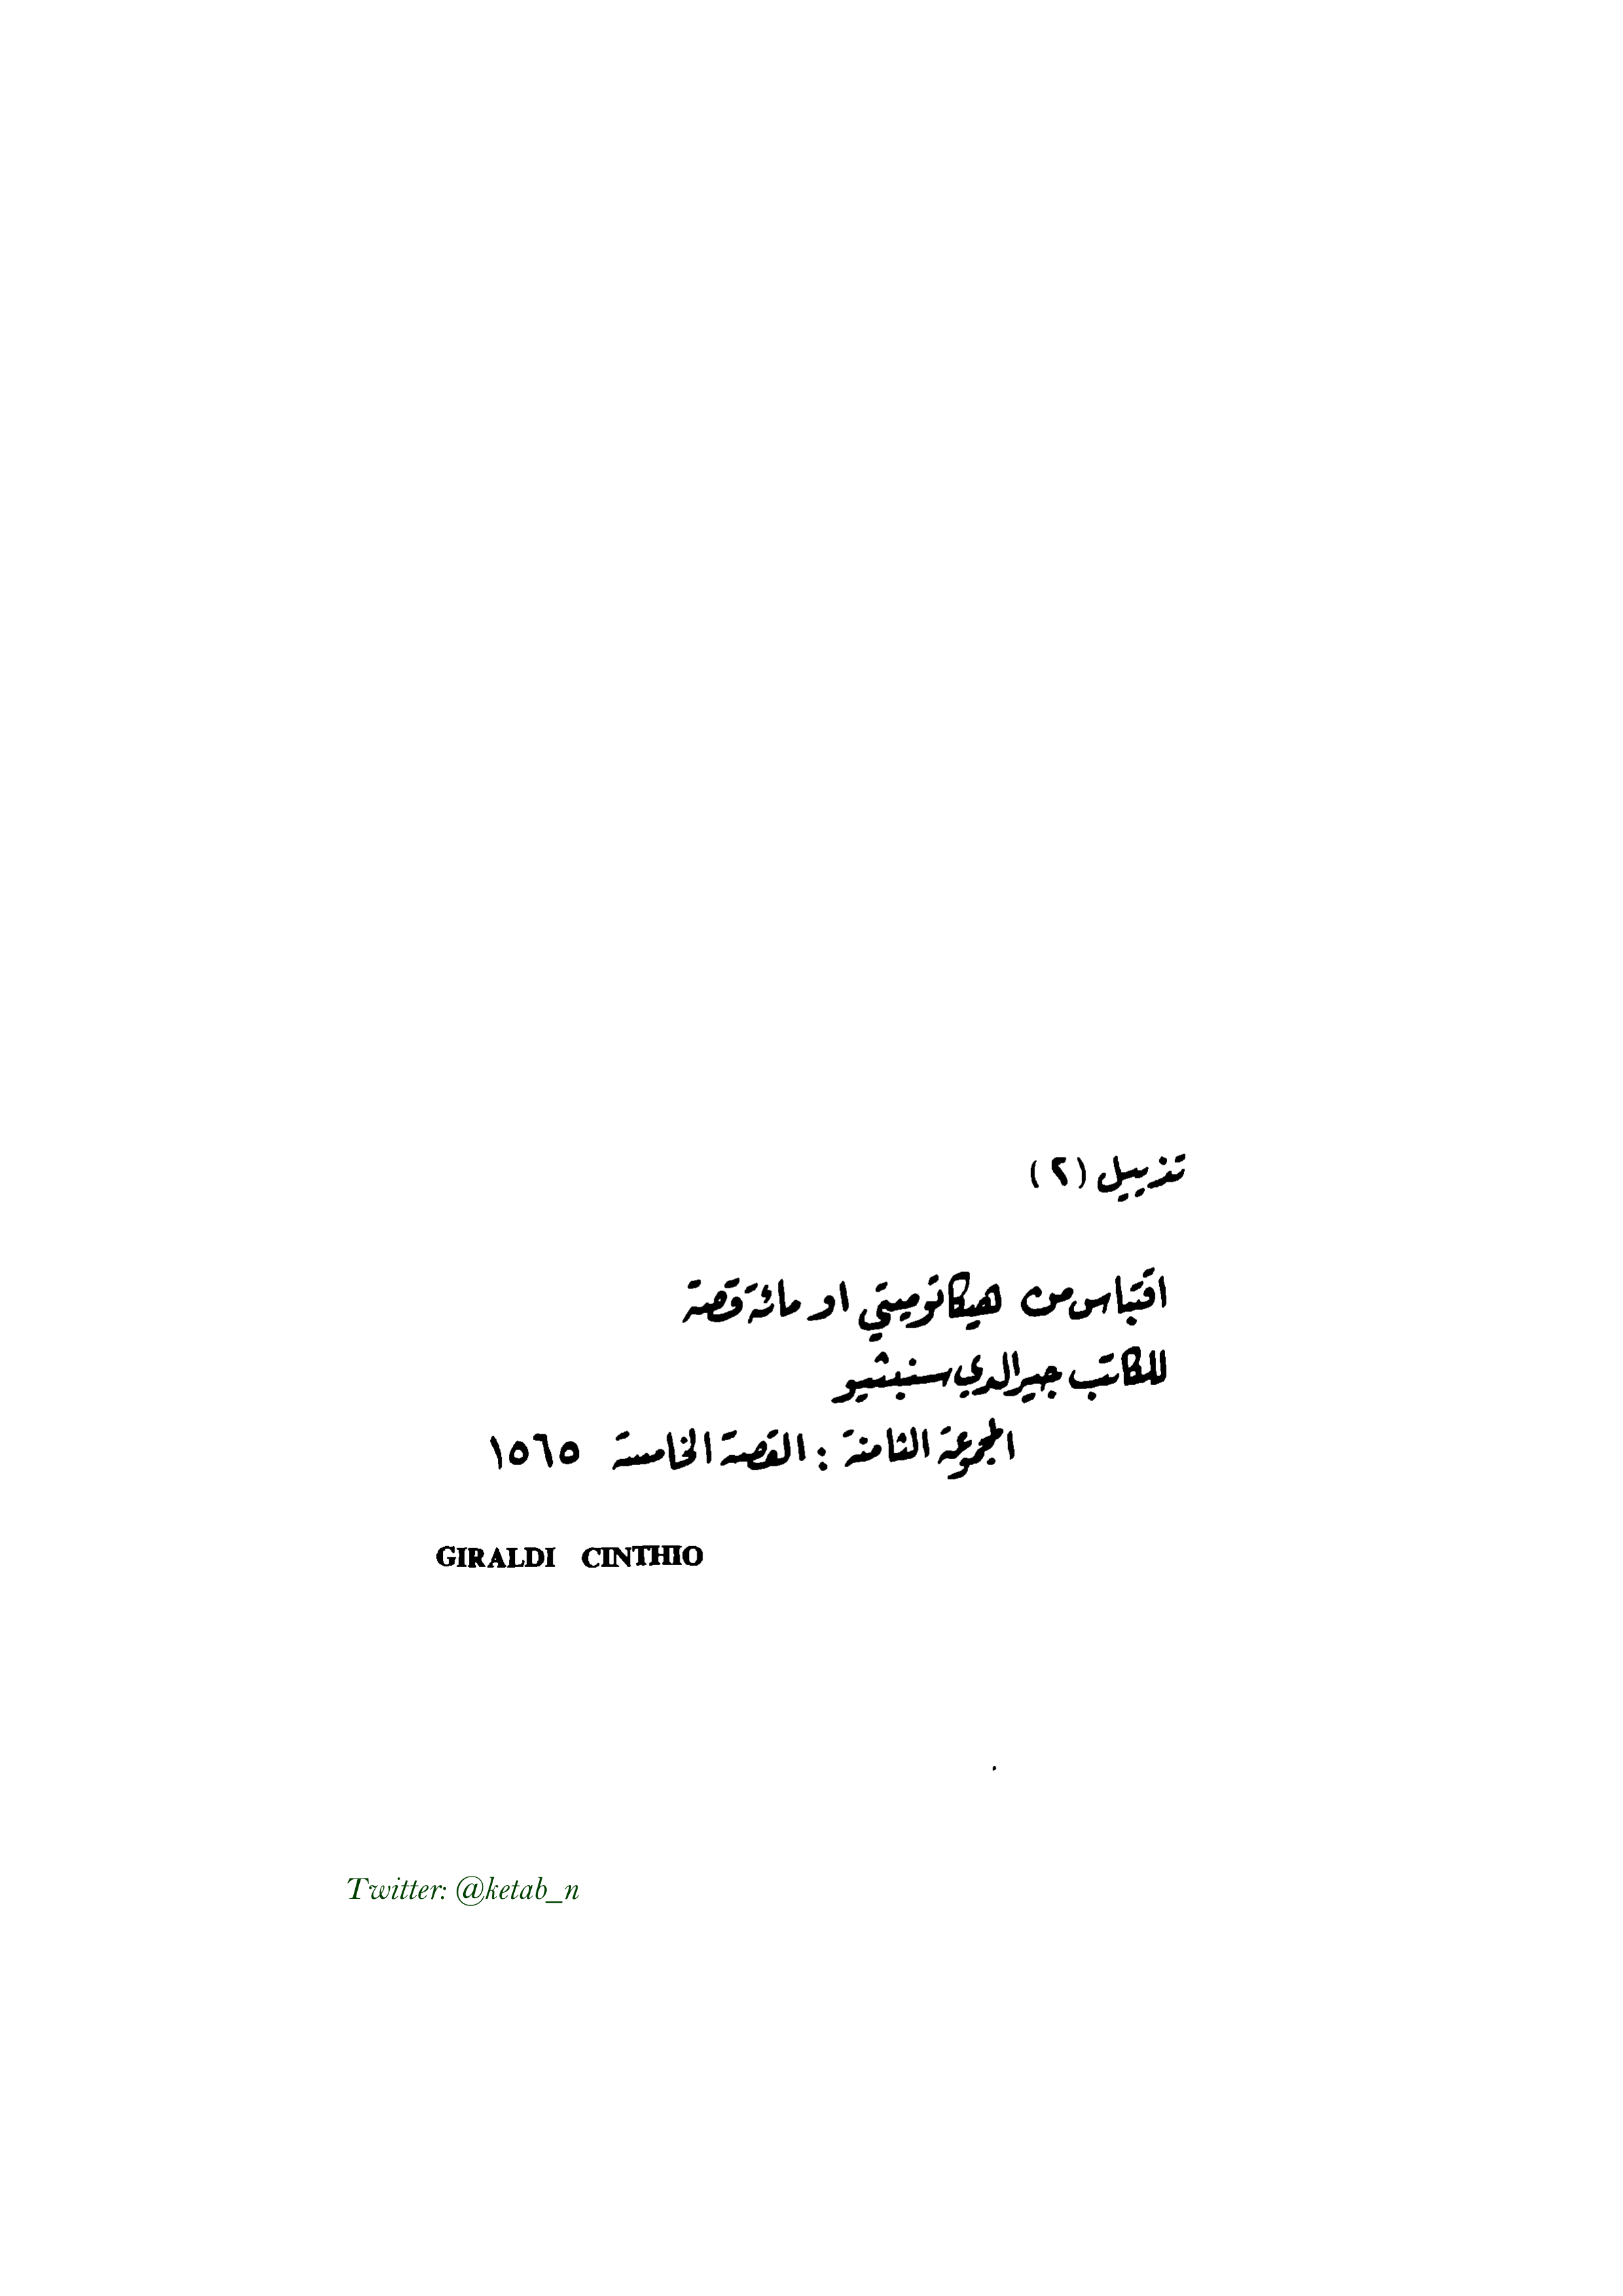 تذييل (٢)
اقتباس من هيكاتوميتي او مائة قصة
للكاتب جيرالدي سنيثيو
المجموعة الثامنة : القصة الخامسة ١٥٦٥
GIRALDI CINTHIO
Twitter: @ketab_n